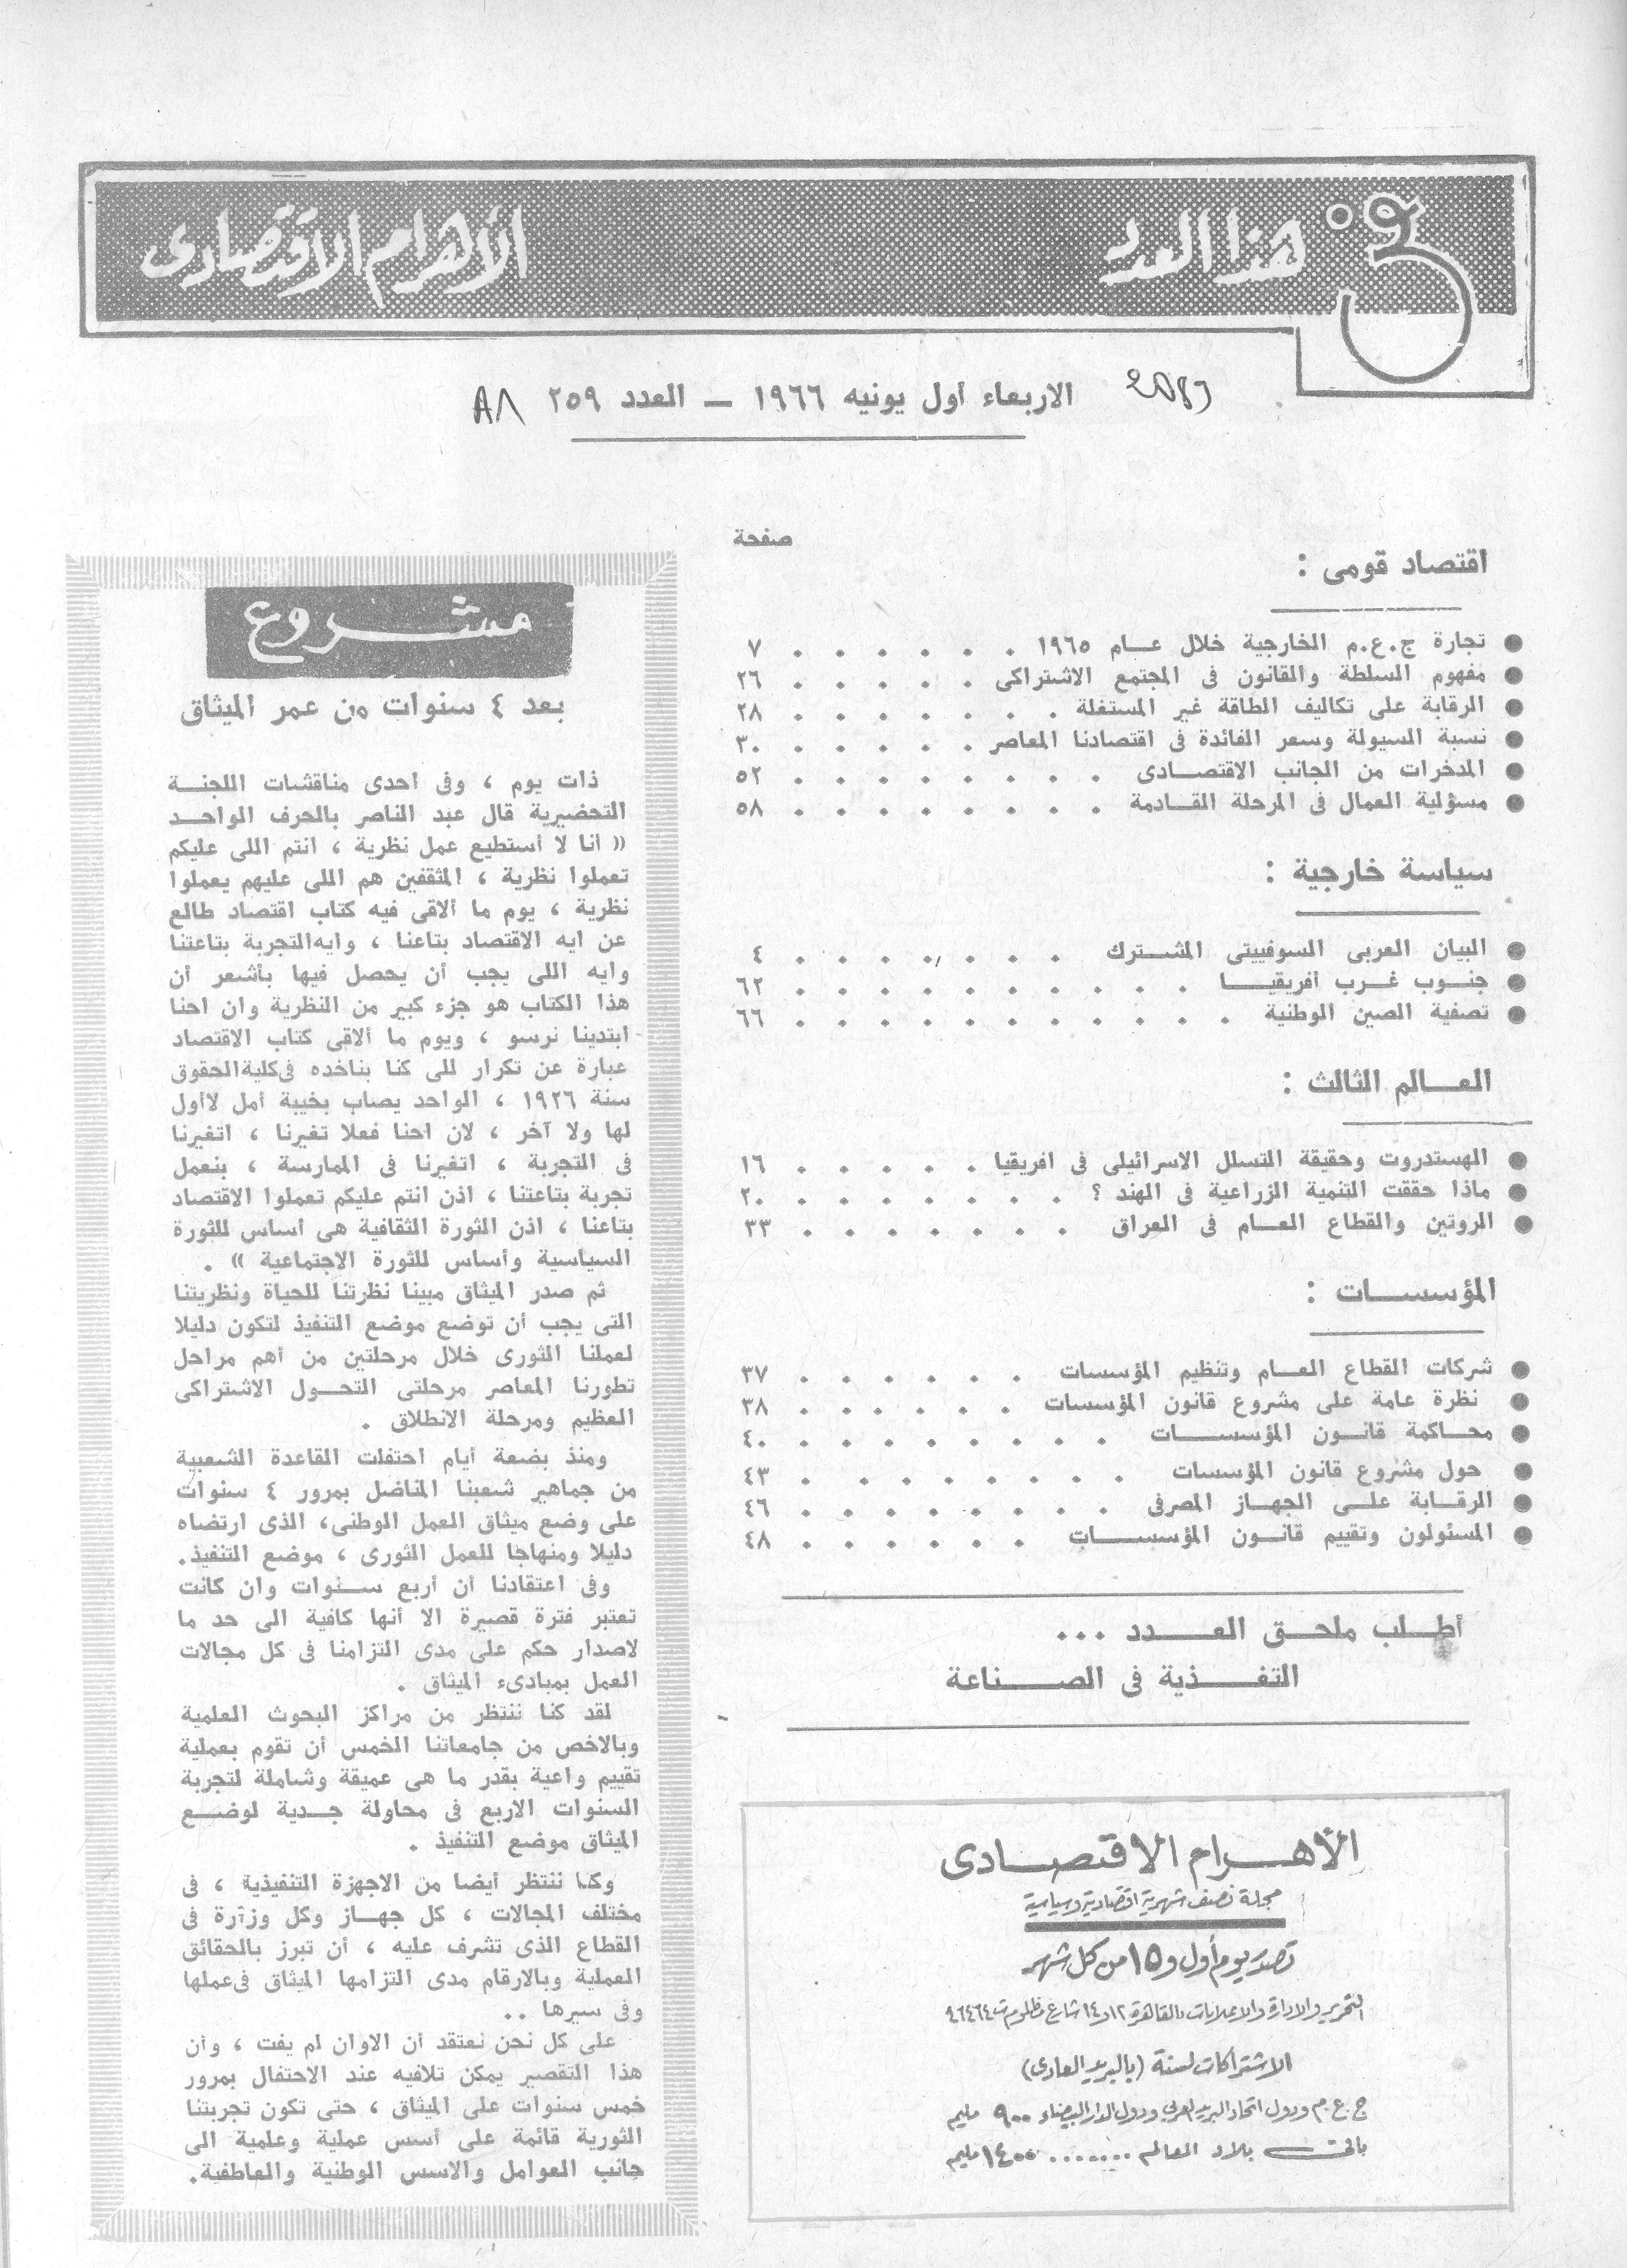 فى هذا العدد
الأهرام الاقتصادى
الاربعاء أول يونيه ١٩٦٦ — العدد ٢٥٩
صفحة
اقتصاد قومى :
● تجارة ج.ع.م الخارجية خلال عــام ١٩٦٥ . . . . . . ٧
● مفهوم السلطة والقانون فى المجتمع الاشتراكى . . . . . ٢٦
● الرقابة على تكاليف الطاقة غير المستغلة . . . . . . . ٢٨
● نسبة السيولة وسعر الفائدة فى اقتصادنا المعاصر . . . . . ٣٠
● المدخرات من الجانب الاقتصــادى . . . . . . . . ٥٢
● مسؤلية العمال فى المرحلة القــادمة . . . . . . . . ٥٨
سياسة خارجية :
● البيان العربى السوفييتى المشــترك . . . . . . . ٤
● جنــوب غــرب افريقيــا . . . . . . . . . . ٦٢
● تصفية الصين الوطنية . . . . . . . . . . . ٦٦
العــالم الثالث :
● الهستدروت وحقيقة التسلل الاسرائيلى فى افريقيا . . . . . ١٦
● ماذا حققت التنمية الزراعية فى الهند ؟ . . . . . . . ٢٠
● الروتين والقطاع العــام فى العراق . . . . . . . ٣٣
المؤسســات :
● شركات القطاع العــام وتنظيم المؤسسات . . . . . . ٣٧
● نظرة عامة على مشروع قانون المؤسسات . . . . . . ٣٨
● محــاكمة قانــون المؤسســات . . . . . . . . ٤٠
● حول مشروع قانون المؤسسات . . . . . . . . ٤٣
● الرقــابة علــى الجهــاز المصرفى . . . . . . . . ٤٦
● المسئولون وتقييم قانــون المؤسســات . . . . . . ٤٨
أطــلب ملحــق العــدد ...
التغــذية فى الصــناعة
الأهــرام الاقتصــادى
مجلة نصف شهرية اقتصادية وسياسية
تصدر يوم أول و ١٥ من كل شهر
التحرير والادارة والاعلانات بالقاهرة ١٢ و ١٤ شارع مظلوم ت ٤٦٤٦٤
الاشتراكات لسنة (بالبريد العادى)
ج.ع.م ودول اتحاد البريد العربى ودول الدار البيضاء ٩٠٠ مليم
باقى بلاد العالم ....... ١٤٠٠ مليم
مشــروع
بعد ٤ سنوات من عمر الميثاق
ذات يوم ، وفى احدى مناقشات اللجنــة
التحضيرية قال عبد الناصر بالحرف الواحــد
« أنا لا أستطيع عمل نظرية ، انتم اللى عليكم
تعملوا نظرية ، المثقفين هم اللى عليهم يعملوا
نظرية ، يوم ما ألاقى فيه كتاب اقتصاد طالع
عن ايه الاقتصاد بتاعنا ، وايه التجربة بتاعتنا
وايه اللى يجب أن يحصل فيها بأشعر أن
هذا الكتاب هو جزء كبير من النظرية وان احنا
ابتدينا نرسو ، ويوم ما ألاقى كتاب الاقتصاد
عبارة عن تكرار للى كنا بناخده فى كلية الحقوق
سنة ١٩٢٦ ، الواحد يصاب بخيبة أمل لاأول
لها ولا آخر ، لان احنا فعلا تغيرنا ، اتغيرنا
فى التجربة ، اتغيرنا فى الممارسة ، بنعمل
تجربة بتاعتنا ، اذن انتم عليكم تعملوا الاقتصاد
بتاعنا ، اذن الثورة الثقافية هى أساس للثورة
السياسية وأساس للثورة الاجتماعية » .
ثم صدر الميثاق مبينا نظرتنا للحياة ونظريتنا
التى يجب أن توضع موضع التنفيذ لتكون دليلا
لعملنا الثورى خلال مرحلتين من أهم مراحل
تطورنا المعاصر مرحلتى التحــول الاشتراكى
العظيم ومرحلة الانطلاق .
ومنذ بضعة أيام احتفلت القاعدة الشعبية
من جماهير شعبنا المناضل بمرور ٤ سنوات
على وضع ميثاق العمل الوطنى، الذى ارتضاه
دليلا ومنهاجا للعمل الثورى ، موضع التنفيذ.
وفى اعتقادنا أن أربع ســنوات وان كانت
تعتبر فترة قصيرة الا أنها كافية الى حد ما
لاصدار حكم على مدى التزامنا فى كل مجالات
العمل بمبادىء الميثاق .
لقد كنا ننتظر من مراكز البحوث العلمية
وبالاخص من جامعاتنا الخمس أن تقوم بعملية
تقييم واعية بقدر ما هى عميقة وشاملة لتجربة
السنوات الاربع فى محاولة جــدية لوضــع
الميثاق موضع التنفيذ .
وكنا ننتظر أيضا من الاجهزة التنفيذية ، فى
مختلف المجالات ، كل جهــاز وكل وزارة فى
القطاع الذى تشرف عليه ، أن تبرز بالحقائق
العملية وبالارقام مدى التزامها الميثاق فى عملها
وفى سيرها ..
على كل نحن نعتقد أن الاوان لم يفت ، وأن
هذا التقصير يمكن تلافيه عند الاحتفال بمرور
خمس سنوات على الميثاق ، حتى تكون تجربتنا
الثورية قائمة على أسس عملية وعلمية الى
جانب العوامل والاسس الوطنية والعاطفية.